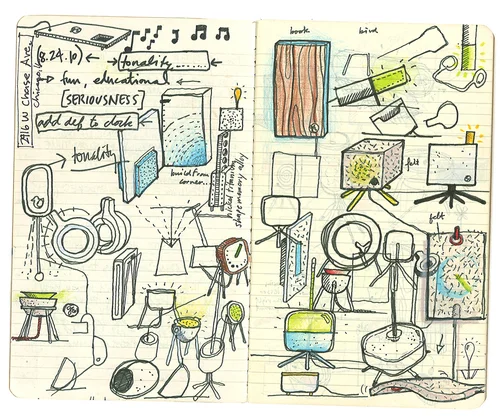 (8.24.10) ← → tonality ←
→ fun, educational ←
[SERIOUSNESS]
add def to clock ←
→ tonality
build from corner...
nickel titanium
shape memory alloy
2916 W Chase Ave.
Chicago,
book
bird
felt
felt